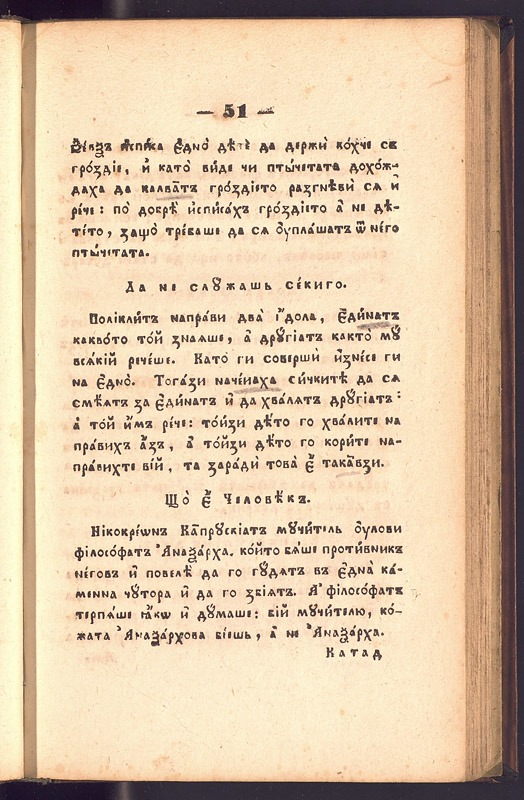 — 51 —
Ѯеѵѯъ исписа є҆дно̀ дѣтѐ да держѝ ко́ꙋче съ
гро́здїе, и҆ като̀ ви́де чи птычетата дохо́ж-
даха да калва́тъ гро́здїето разгнѣвѝ сѧ и҆
ре́че: по̀ добрѣ̀ и҆спи́сахъ гро́здїето а҆ не дѣ-
те́то, защо̀ тре́ваше да сѧ ᲂу҆пла́шатъ ѿ не́го
пты́четата.
Да не слꙋ́жашъ се́киго.
Поликли́тъ напра́ви два̀ і҆́дола, є҆ди́натъ
какво́то то́й зна́ѧше, а҆ дрꙋ́гїатъ ка́кто мꙋ̀
всѧ́кїй рече́ше. Като̀ ги совершѝ и҆зне́се ги
на є҆дно̀. Тога́зи наче́наха си́чките да сѧ
смѣ́ѧтъ за є҆ди́натъ и҆ да хва́лѧтъ дрꙋ́гїатъ:
а҆ то́й и҆̀мъ ре́че: то́йзи дѣ́то го хва́лите на
пра́вихъ а҆́зъ, а҆ то́йзи дѣ́то го ко́рите на-
пра́вихте ві́й, та зара́ди това̀ є҆̀ така́взи.
Що̀ є҆̀ Человѣ́къ.
Никокре́ѡнъ Ка́прꙋскїатъ мꙋчи́тель ᲂу҆лови
філосо́фатъ Ана́ѯарха, ко́йто бѧ́ше проти́вникъ
не́говъ и҆ повелѣ̀ да го гꙋ́дѧтъ въ є҆дна̀ ка́-
менна чꙋ́тора и҆ да го збі́ѧтъ. А҆ філосо́фатъ
терпѧ́ше ꙗ҆́кѡ и҆ дꙋ́маше: бі́й мꙋчи́телю, ко́-
жата Ана́ѯархова бі́ешь, а҆ не Ана́ѯарха.
Катад